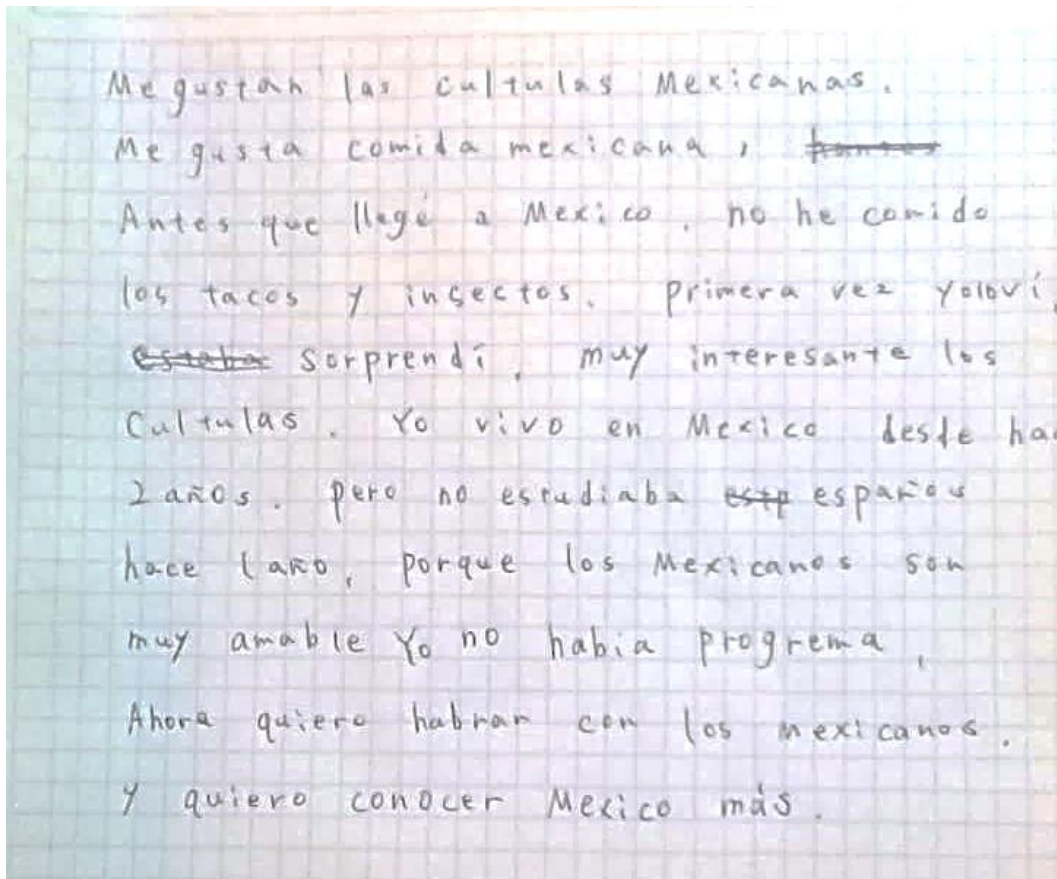 Me gustan las cultulas Mexicanas.
Me gusta comida mexicana,
Antes que llegé a Mexico, no he comido
los tacos y insectos. primera vez yo lo ví,
esteba sorprendí, muy interesante los
Cultulas. Yo vivo en Mexico desde ha
2 años. pero no estudiaba esp españos
hace 1 año, porque los Mexicanos son
muy amable Yo no habia progrema,
Ahora quiero habrar con los mexicanos.
y quiero conocer Mexico más.